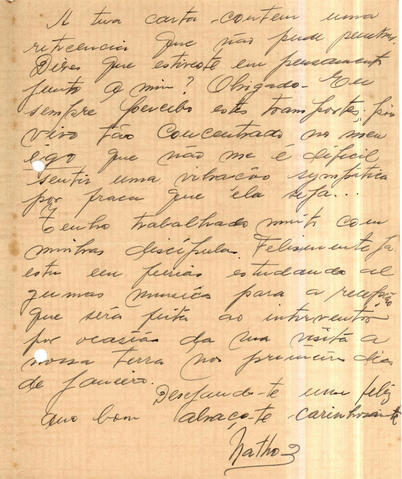 A tua carta contem uma
reticencia que não pude penetrar.
Dizes que estiveste em pensamento
junto a mim? Obrigado. Eu
sempre percebo estes transportes, pois
vivo tão concentrado no meu
ego que não me é dificil
sentir uma vibração sympatica
por fraca que ela seja...
Tenho trabalhado muito com
minhas discipulas. Felismente já
estu em ferias estudando al
gumas musicas para a recepção
que será feita ao interventor
por ocasião da sua visita a
nossa terra nos primeiros dias
de Janeiro.
Desejando-te um feliz
Ano bom abraço-te carinhosamente